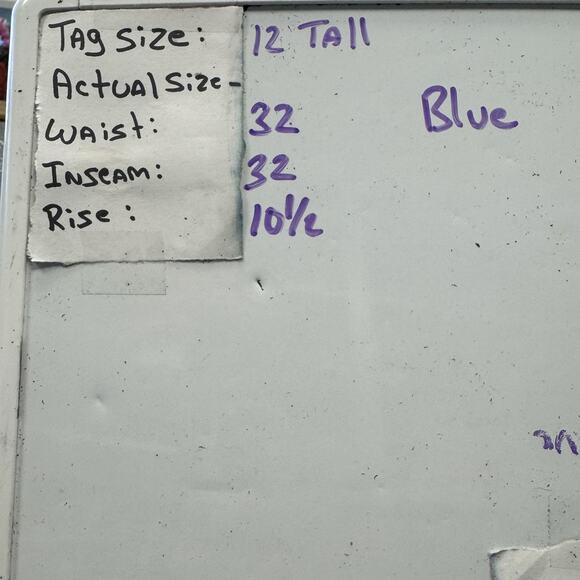 Tag Size: 12 Tall
Actual Size-
Waist: 32 Blue
Inseam: 32
Rise: 10 1/2